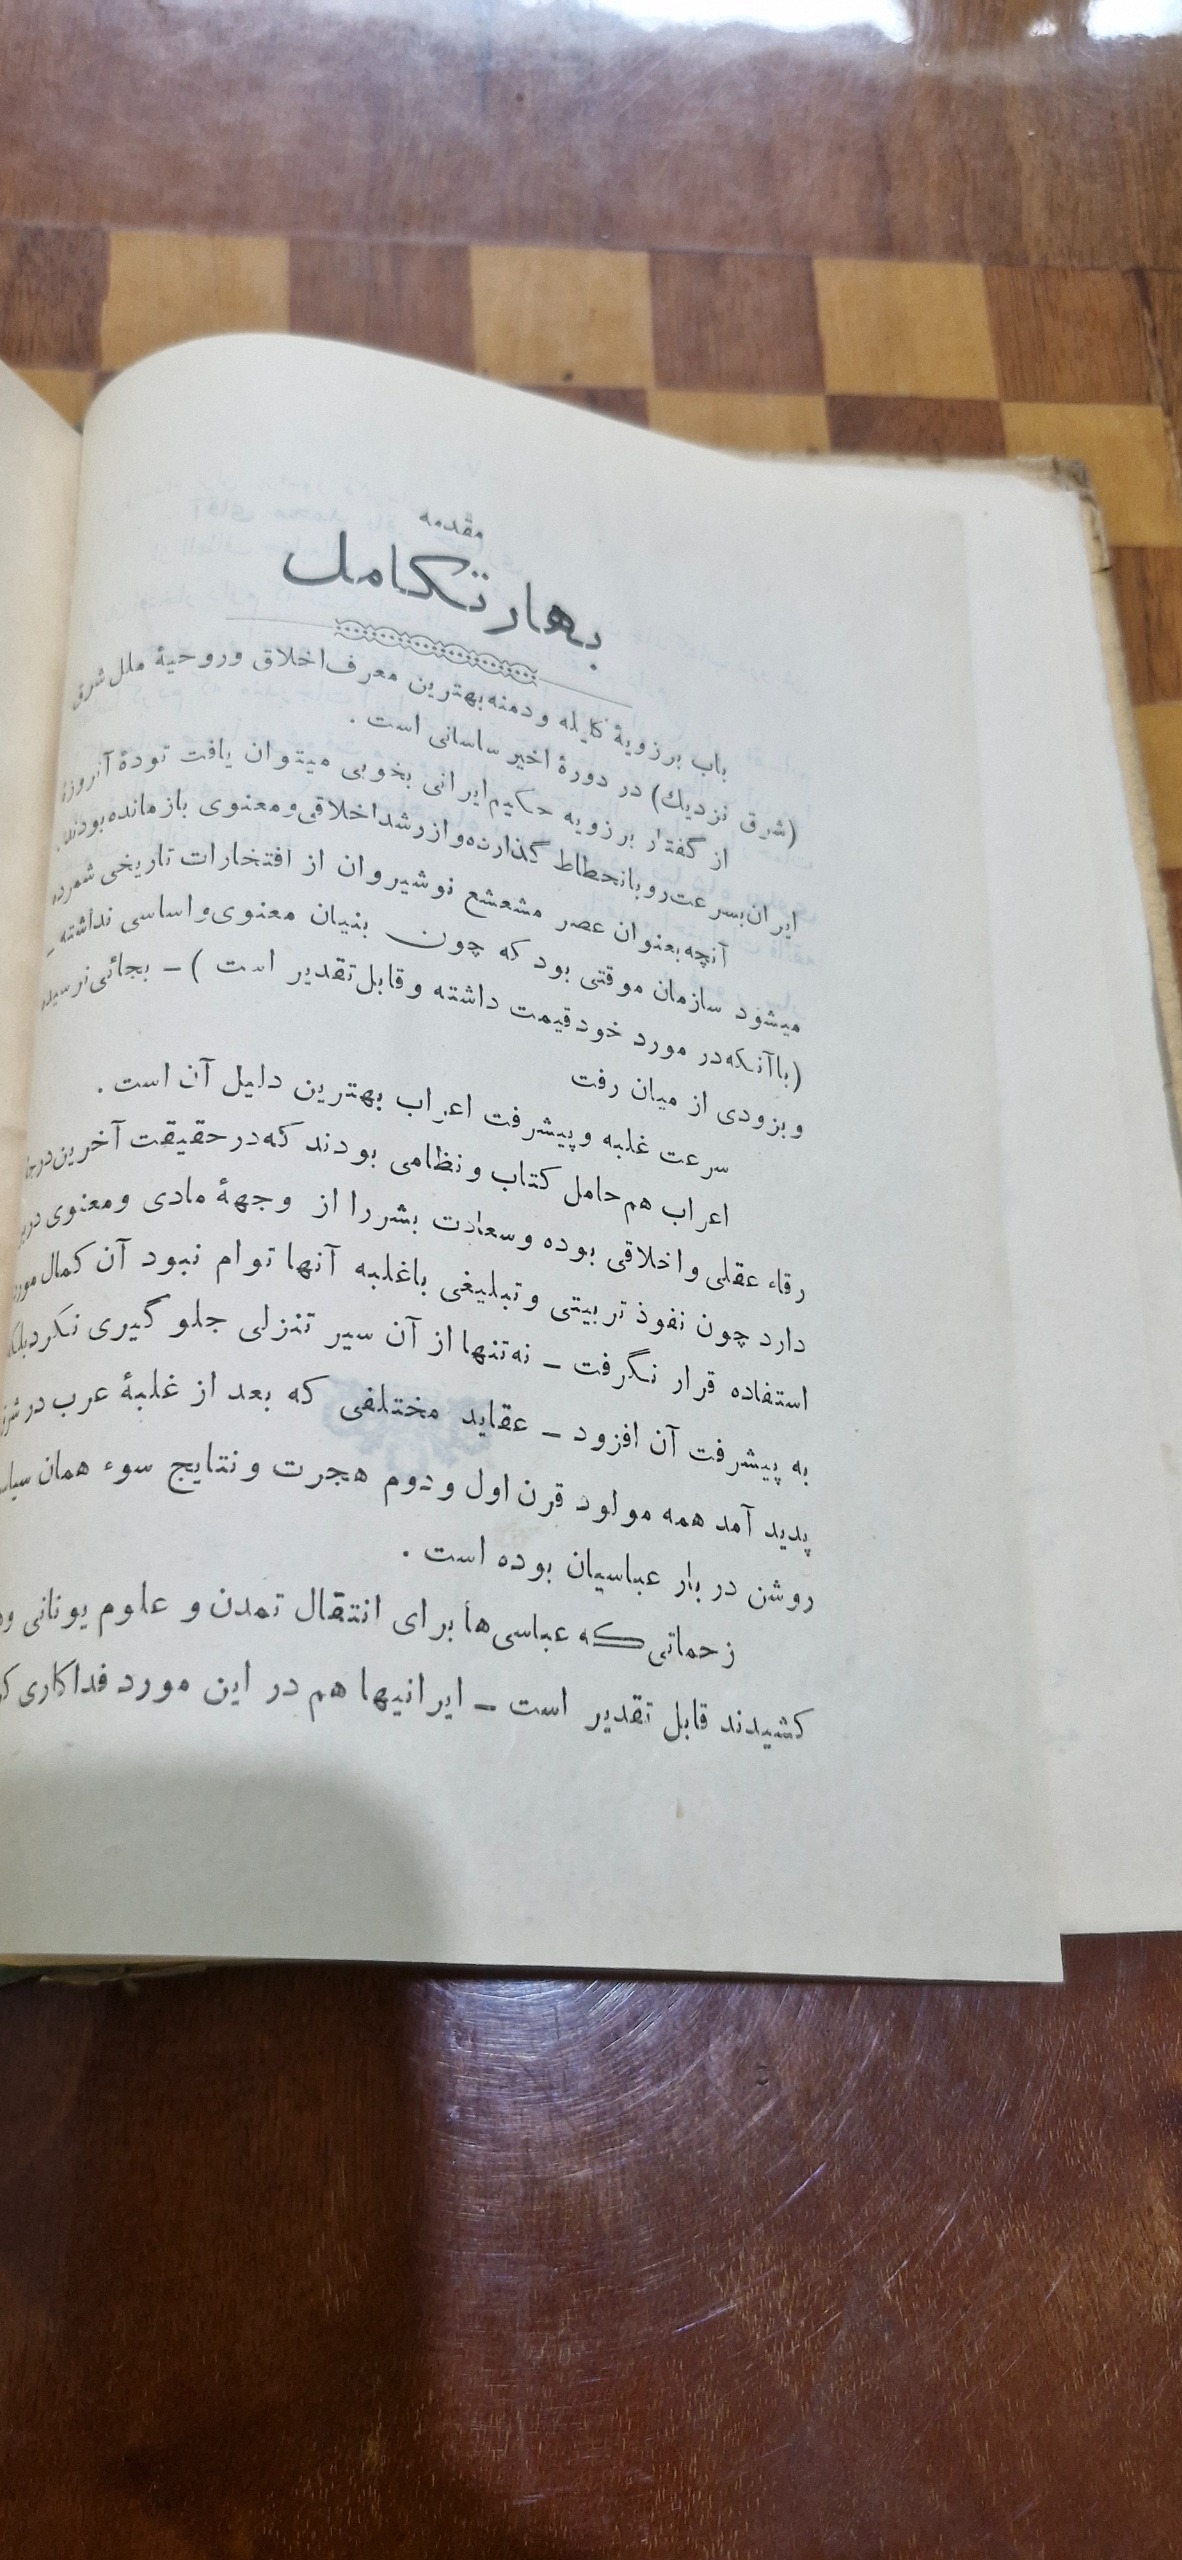 مقدمه
بهار تکامل
باب برزویهٔ کلیله و دمنه بهترین معرف اخلاق و روحیهٔ ملل شرق
(شرق نزدیك) در دورهٔ اخیر ساسانی است .
از گفتار برزویه حکیم ایرانی بخوبی میتوان یافت تودهٔ آنروزهٔ
ایران بسرعت رو بانحطاط گذارده و از رشد اخلاقی و معنوی بازمانده بودند.
آنچه بعنوان عصر مشعشع نوشیروان از افتخارات تاریخی شمرده
میشود سازمان موقتی بود که چون بنیان معنوی و اساسی نداشته ـ
(با آنکه در مورد خود قیمت داشته و قابل تقدیر است ) ـ بجائی نرسیده
و بزودی از میان رفت
سرعت غلبه و پیشرفت اعراب بهترین دلیل آن است .
اعراب هم حامل کتاب و نظامی بودند که در حقیقت آخرین
رقاء عقلی و اخلاقی بوده و سعادت بشر را از وجههٔ مادی و معنوی
دارد چون نفوذ تربیتی و تبلیغی با غلبه آنها توام نبود آن کمال مورد
استفاده قرار نگرفت ـ نه تنها از آن سیر تنزلی جلو گیری نکرد
به پیشرفت آن افزود ـ عقاید مختلفی که بعد از غلبهٔ عرب در
پدید آمد همه مولود قرن اول و دوم هجرت و نتایج سوء همان
روشن در بار عباسیان بوده است .
زحماتی که عباسی‌ها برای انتقال تمدن و علوم یونانی
کشیدند قابل تقدیر است ـ ایرانیها هم در این مورد فداکاری